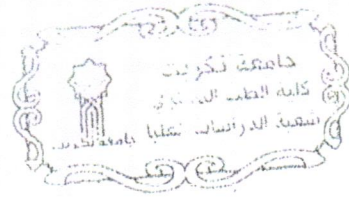 جامعة تكريت
كلية الطب البيطري
شعبة الدراسات العليا جامعة تكريت